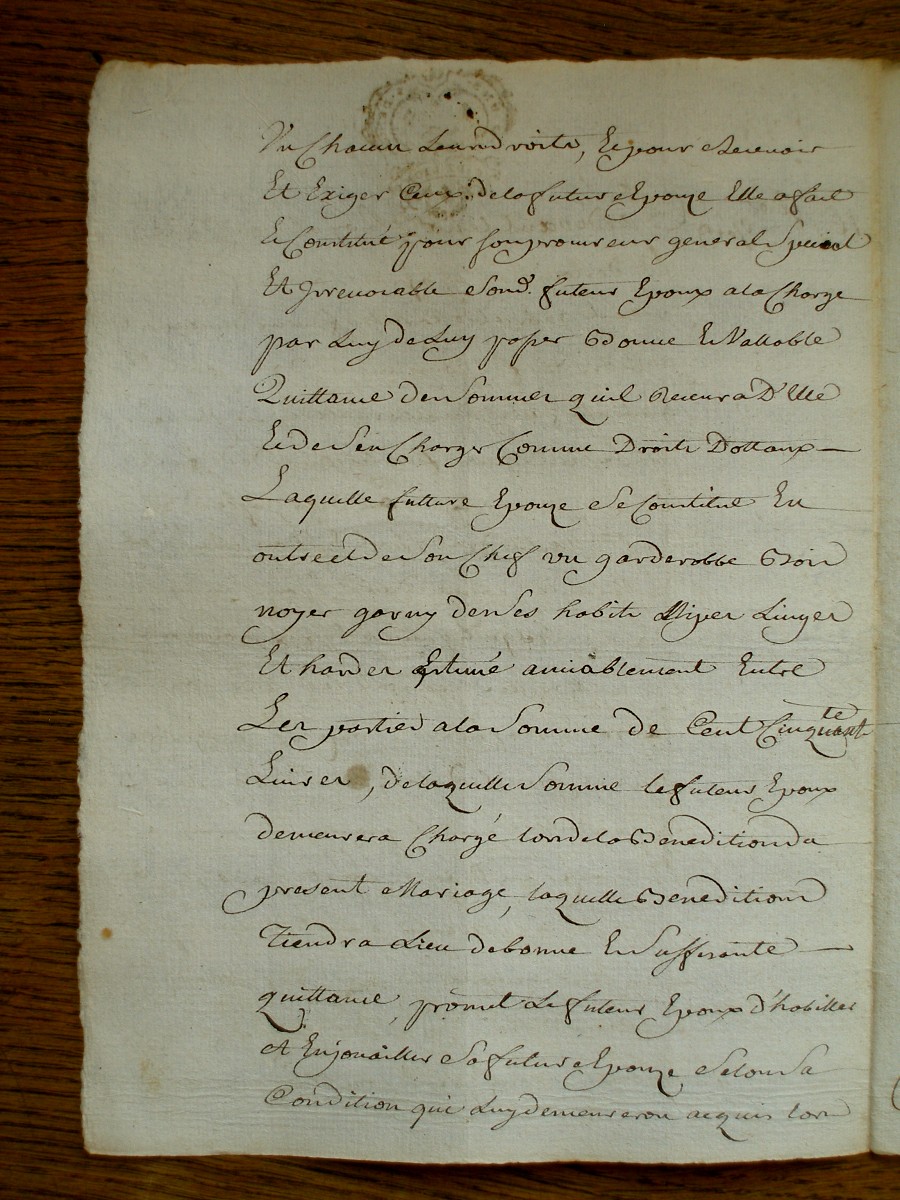 Un Chacun Leurs droits, Et pour Recevoir
Et Exiger Ceux de la future Epouze Elle a fait
Et Constitué pour son procureur general Special
Et Irrevocable Son d. futeur Epoux a la Charge
par Luy de Luy passer Bonne Et Vallable
Quittance des Sommes quil Recevra D'Elle
Et de S'en Charger Comme Droits Dottaux
Laquelle futture Epouze Se Constitue En
outre et de Son Chef un garderobbe Bois
noyer garny de Ses habits Linges
Et hardes Estimé amiablement Entre
Les parties a la Somme de Cent Cinquante
Livres, de laquelle Somme le futeur Epoux
demeurera Chargé lors de la Benedition du
present Mariage, laquelle Benedition
Tiendra Lieu de bonne Et Suffisante
quittance, promet Le futeur Epoux d'habiller
et Enjouailler Sa future Epouze Selon Sa
Condition qui Luy demeureron acquis lors